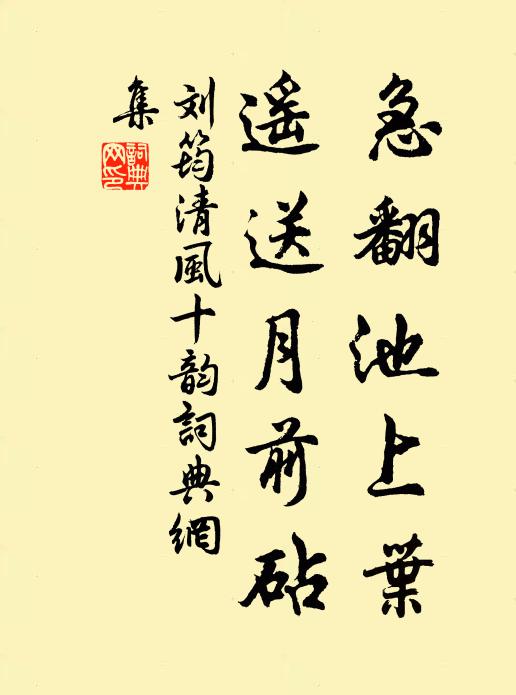 急翻池上葉
遥送月前砧
刘筠清風十韵詞典網
集
詞典
网印